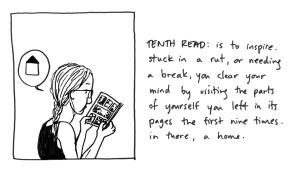 TENTH READ: is to inspire.
stuck in a rut, or needing
a break, you clear your
mind by visiting the parts
of yourself you left in its
pages the first nine times.
in there, a home.